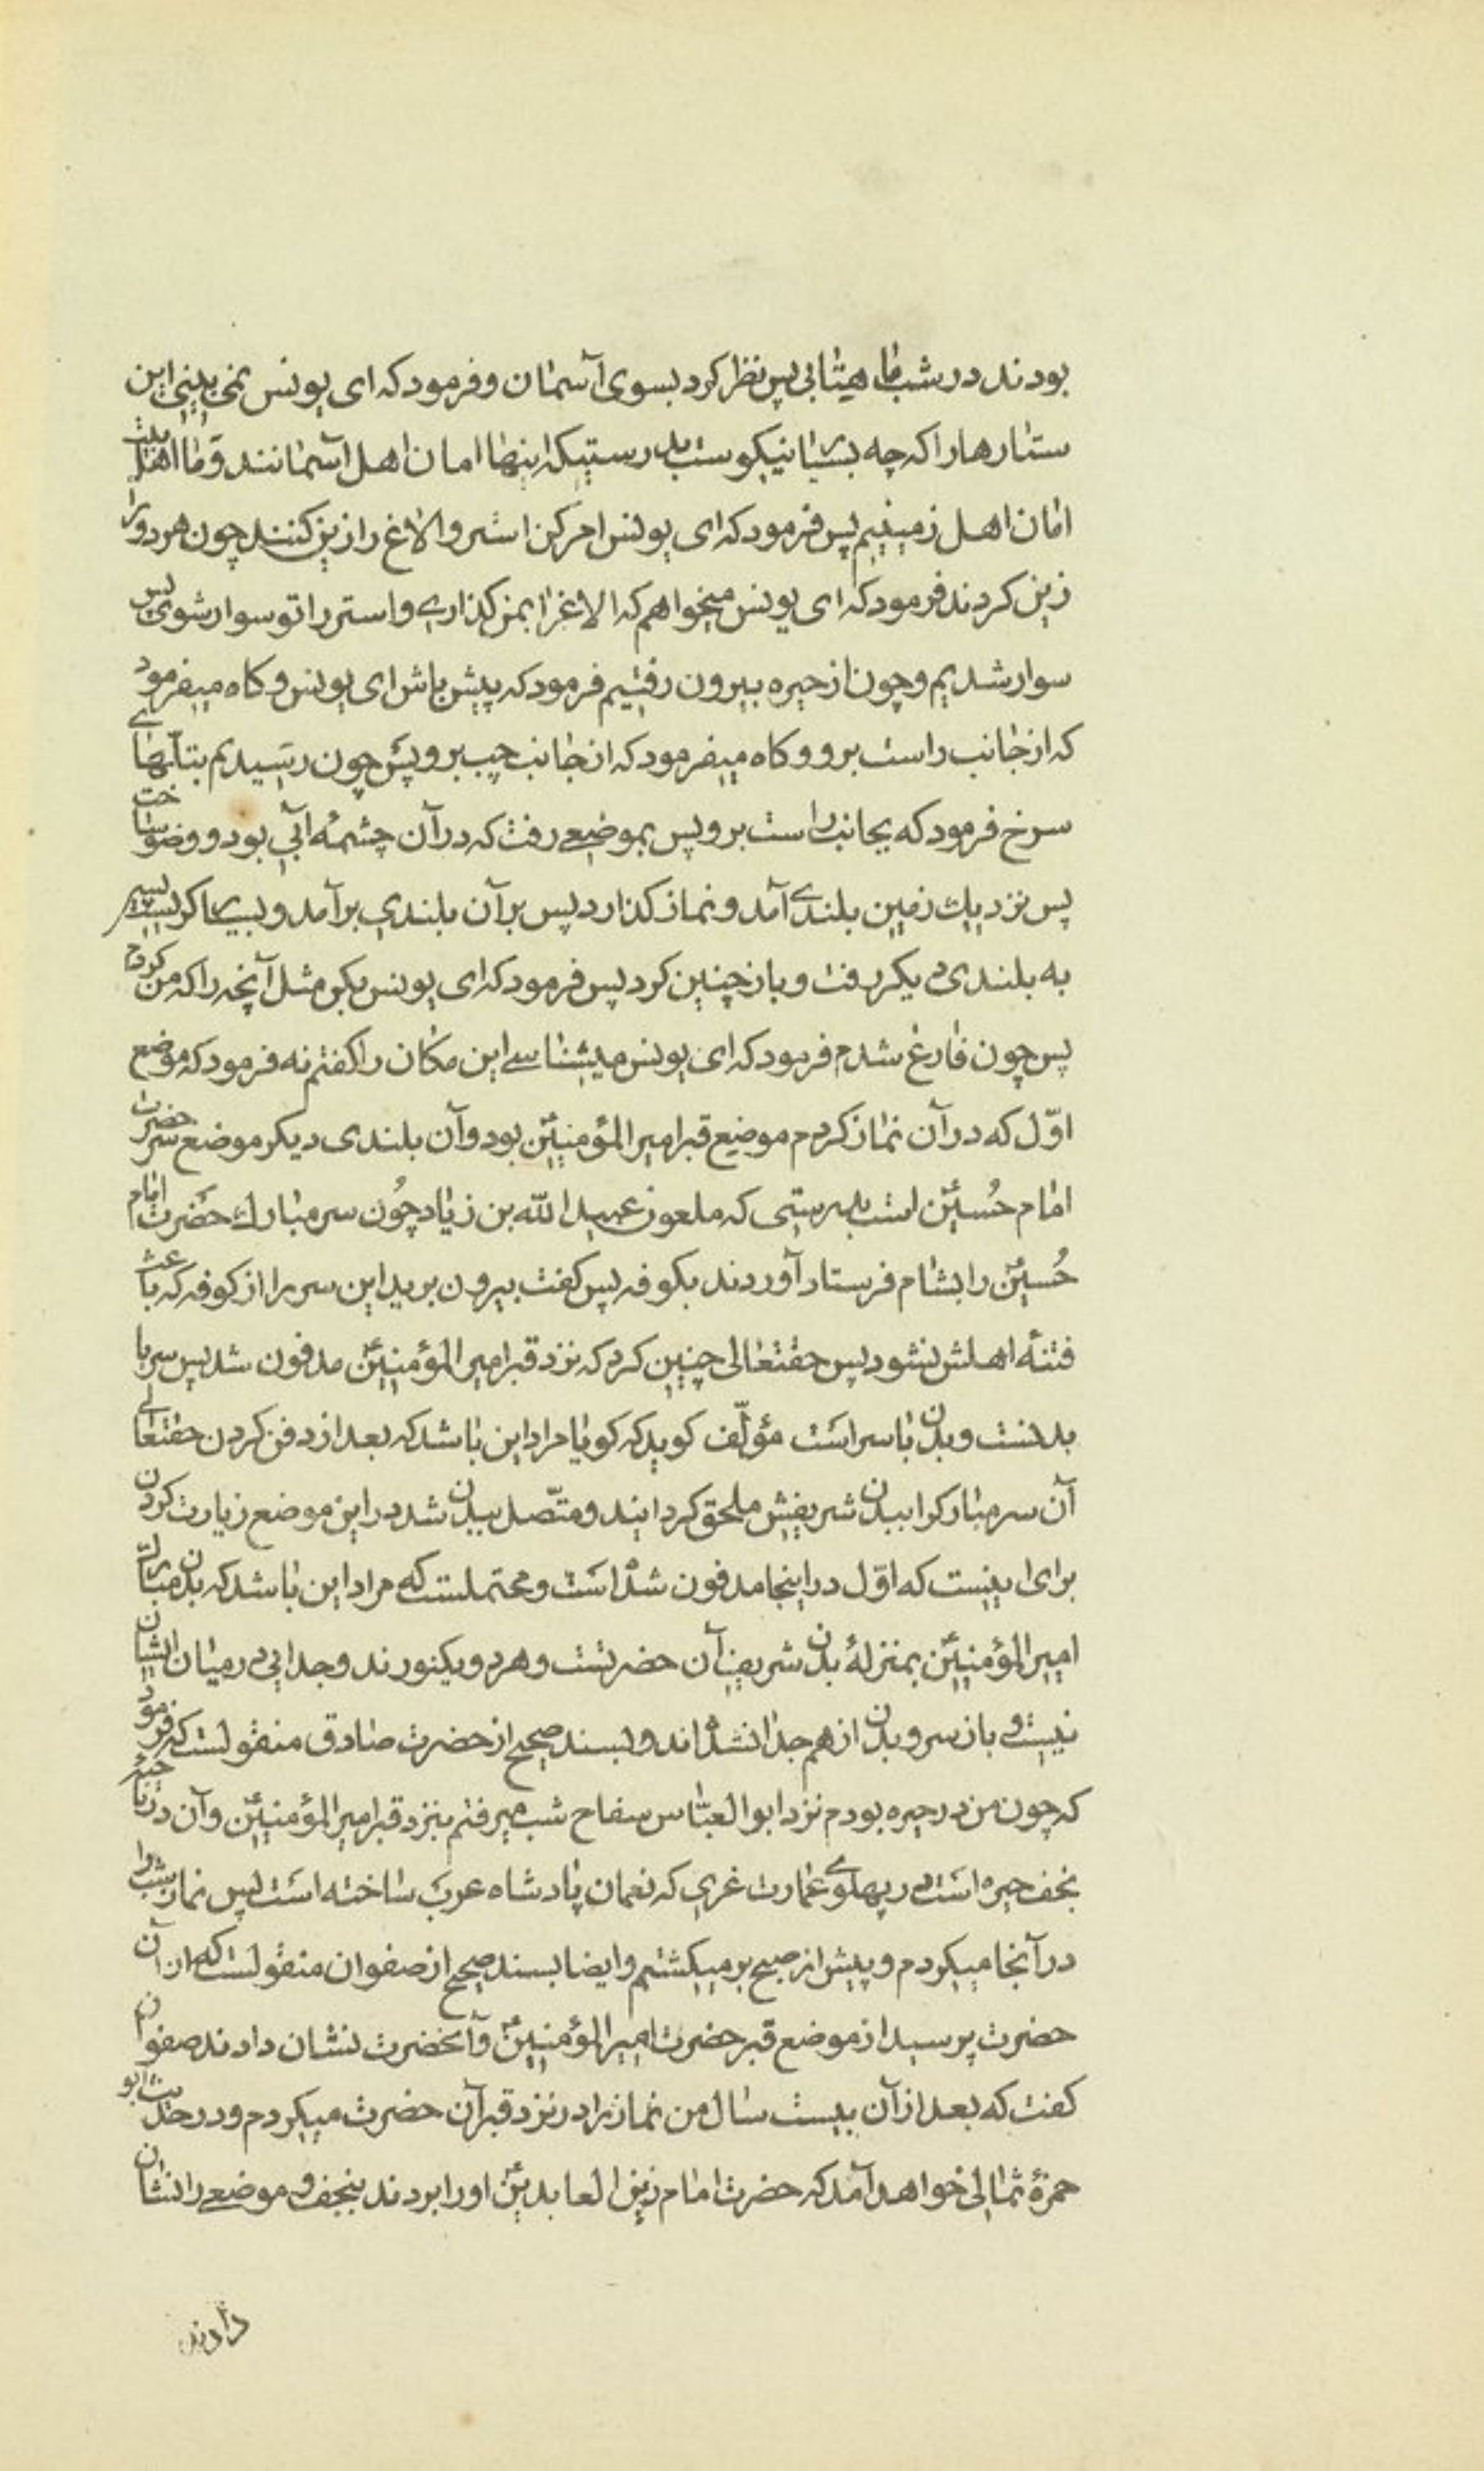 بودند در شب ماهتابی پس نظر کرد بسوی آسمان و فرمود که ای یونس نمی بینی این
ستارها را که چه بسیار نیکوست بدرستیکه اینها امان اهل آسمانند و ما اهل بیت
امان اهل زمینیم پس فرمود که ای یونس امر کن استر و الاغ را زین کنند چون هر دو را
زین کردند فرمود که ای یونس میخواهم که الاغ را بمن کذاری و استر را تو سوار شوی پس
سوار شدیم و چون از حیره بیرون رفتیم فرمود که پیش باش ای یونس و کاه میفرمود
که از جانب راست برو و کاه میفرمود که از جانب چپ برو پس چون رسیدیم بتلّهای
سرخ فرمود که بجانب راست برو پس بموضعی رفت که در آن چشمهٔ آبی بود و وضو ساخت
پس نزدیك زمین بلندی آمد و نماز کذارد پس بر آن بلندی برآمد و بسیار کریست پس
به بلندی دیکر رفت و باز چنین کرد پس فرمود که ای یونس بکن مثل آنچه را که من کردم
پس چون فارغ شدم فرمود که ای یونس میشناسی این مکان را کفتم نه فرمود که موضع
اوّل که در آن نماز کردم موضع قبر امیر المؤمنینؑ بود و آن بلندی دیکر موضع سر حضرت
امام حُسینؑ است بدرستی که ملعون عبید الله بن زیاد چُون سر مبارك حَضرت امام
حُسینؑ را بشام فرستاد آوردند بکوفه پس کفت بیرون برید این سر را از کوفه که باعث
فتنهٔ اهلش نشود پس حقتعالی چنین کرد که نزد قبر امیر المؤمنینؑ مدفون شد پس سر با
بدنست و بدن با سر است مؤلّف کوید که کویا مراد این باشد که بعد از دفن کردن حقتعالی
آن سر مبارك را ببدن شریفش ملحق کردانید و متّصل ببدن شد در این موضع زیارت کردن
برای اینست که اوّل در اینجا مدفون شده است و محتملست که مراد این باشد که بدن مبارك
امیر المؤمنینؑ بمنزلهٔ بدن شریف آن حضرتست و هر دو یکنورند و جدایی در میان ایشان
نیست و باز سر و بدن از هم جدا نشده اند و بسند صحیح از حضرت صادق منقولست که فرمود
که چون من در حیره بودم نزد ابو العبّاس سفاح شب میرفتم بنزد قبر امیر المؤمنینؑ و آن در
نجف حیره است در پهلوی عمارت غری که نعمان پادشاه عرب ساخته است پس نماز شب را
در آنجا میکردم و پیش از صبح بر میکشتم و ایضا بسند صحیح از صفوان منقولست که از آن
حضرت پرسید از موضع قبر حضرت امیر المؤمنینؑ و آنحضرت نشان دادند صفوان
کفت که بعد از آن بیست سال من نماز را در نزد قبر آن حضرت میکردم و در حدیث ابو
حمزهٔ ثمالی خواهد آمد که حضرت امام زین العابدینؑ او را بردند بنجف و موضعی را نشان
دادند